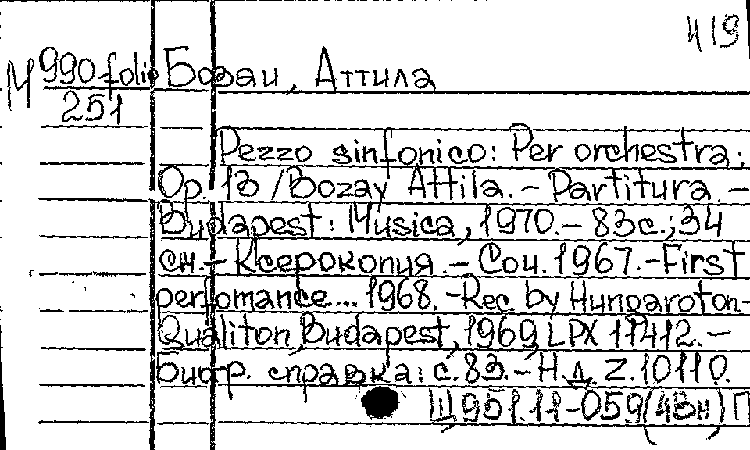 419
М 990 folio Бозаи, Аттила
251
Pezzo sinfonico: Per orchestra;
Op. 13 / Bozay Attila. – Partitura. –
Budapest: Musica, 1970. – 83с.; 34
см. – Ксерокопия. – Соч. 1967. – First
perfomance... 1968. – Rec by Hungaroton-
Qualiton, Budapest, 1969, LPX 11412. –
Биогр. справка: с. 83. – Н.д. Z. 10110.
Щ951.11-059(4Вн) П